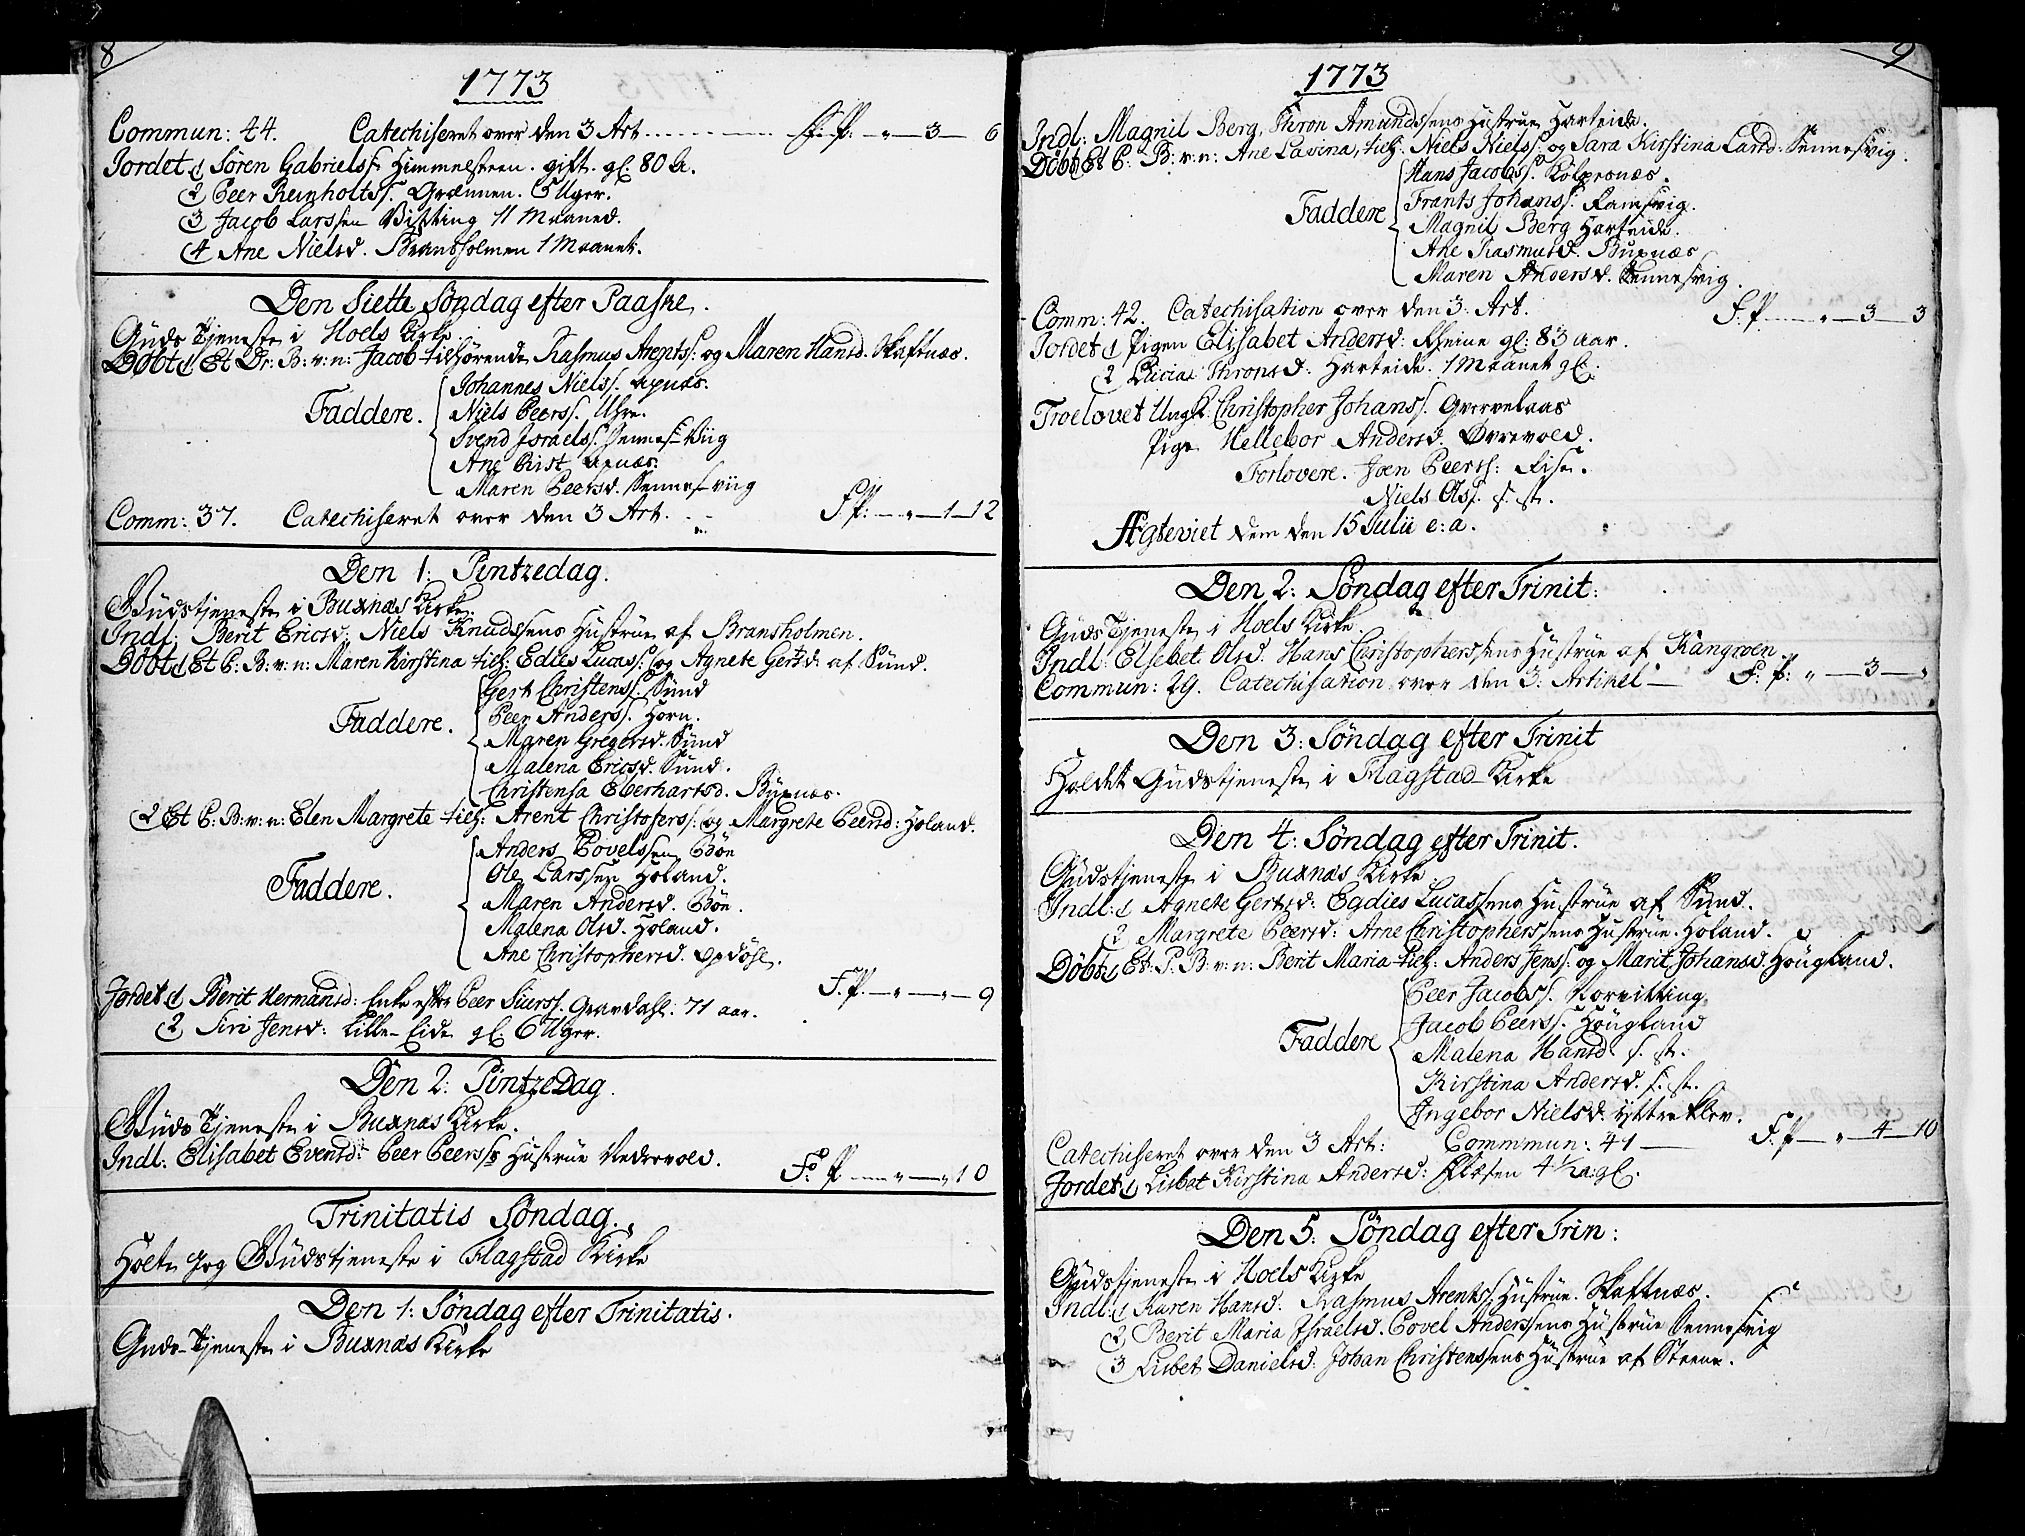 8
1773
Commun: 44. Catechiseret over den 3 Art. F. P: „ — 3 — 6
Jordet 1 Søren Gabrielss: Himmelsteen. gift. gl: 80 A.
2 Peer Reinholts. Grœnnen. 5 Uger.
3 Jacob Larssen 11 Maaned.
4 Ane Nielsd. Bransholmen 1 Maanet.
Den Siette Søndag efter Paaske.
Guds Tjeneste i Hoels Kirke.
Døbt 1 Et Dr: B: v: n: Jacob tilhørende Rasmus Arentss: og Maren Hansd. Skaftnæs.
Faddere.
Johannes Nielss. Apnæs.
Niels Peerss. Uhre.
Svend Israelss. Sennesviig
Ane Rist Apnæs.
Maren Peersd. Sennesviig
Comm: 37. Catechiseret over den 3 Art. F. P: — „ — 1 — 12
Den 1: Pintzedag.
Gudstjeneste i Buxnæs Kirke.
Indl: Berit Ericsd: Niels Knudssens Hustrue af Bransholmen.
Døbt 1 Et P: B: v: n: Maren Kirstina tilh: Edies Lucass: og Agnete Gertsd. af Sund.
Faddere.
Gert Christenss. Sund
Peer Anderss. Horn.
Maren Gregersd. Sund
Malena Ericsd. Sund.
Christensa Eberhartsd. Buxnæs.
2 Et P: B: v: n: Elen Margrete tilh: Arent Christofers: og Margrete Peersd: Holand.
Faddere.
Anders Povelssen Bøe
Ole Larssen Holand.
Maren Andersd. Bøe.
Malena Olsd. Holand.
Ane Christophersd. Opdøhl.
Jordet 1 Berit Hermansd: Enke efter Peer Siurss. Gravdahl: 71 aar. F. P. — „ — „ — 9
2 Siri Jensd: Lille-Eide gl: 6 Uger.
Den 2: Pintzedag.
Guds Tjeneste i Buxnæs Kirke.
Indl: Elisabet Evensd: Peer Peerss Hustrue Nedrevold. F: P. — „ — „ 10
Trinitatis Søndag.
Holte jeg Gudstjeneste i Flagstad Kirke
Den 1: Søndag efter Trinitatis.
Guds-Tjeneste i Buxnæs Kirke
9
1773
Indl: Magnil Berg, Thron Amundssens Hustrue Harteide.
Døbt Et P: B: v: n: Ane Lavina, tilh: Niels Nielss: og Sara Kirstina Larsd. Sennesvig.
Faddere
Hans Jacobss. Kolpesnæs.
Frants Johanss. Ramsvig.
Magnil Berg Harteide.
Ane Rasmusd. Buxnæs
Maren Andersd. Sennesvig.
Comm: 42. Catechisation over den 3: Art. F: P — „ — 3 — 3
Jordet 1 Pigen Elisabet Andersd: Rheine gl: 83 aar.
2 Lucia Thronsd: Harteide. 1 Maanet gl:
Troelovet Ungk: Christopher Johanss. Qvervelaas
Pige Hellebor Andersd. Øvrevold.
Forlovere. Joen Peerss: Rise.
Niels Olss. s. st.
Ægteviet dem den 15 Julii e: a.
Den 2: Søndag efter Trinit:
Guds Tjeneste i Hoels Kirke.
Indl: Elsebet Olsd. Hans Christopherssens Hustrue af Kangroen.
Commun: 29. Catechisation over den 3: Artikel — F: P: „ — 3 — „
Den 3: Søndag efter Trinit
Holdet Gudstjeneste i Flagstad Kirke
Den 4: Søndag efter Trinit.
Gudstjeneste i Buxnæs Kirke
Indl: 1 Agnete Gertsd: Egdies Lucassens Hustrue af Sund.
2 Margrete Peersd: Arne Christopherssens Hustrue. Holand.
Døbt 1 Et P. B: v: n: Berit Maria tilh: Anders Jenss: og Marit Johansd. Hougland.
Faddere
Peer Jacobss. Norvitting.
Jacob Peerss. Hougland
Malena Hansd. s. st.
Kirstina Andersd. s. st.
Ingebor Nielsd. Yttreklev.
Catechiseret over den 3 Art: Commun: 41 — F. P — „ — 4 — 10
Jordet 1 Lisbet Kirstina Andersd: 4 1/2 a: gl.
Den 5: Søndag efter Trin:
Gudstjeneste i Hoels Kirke
Indl: 1 Karen Hansd: Rasmus Arents: Hustrue. Skaftnæs.
2 Berit Maria Israelsd. Povel Anderssens Hustrue Sennesvig
3 Lisbet Danielsd: Johan Christenssens Hustrue af Steene.